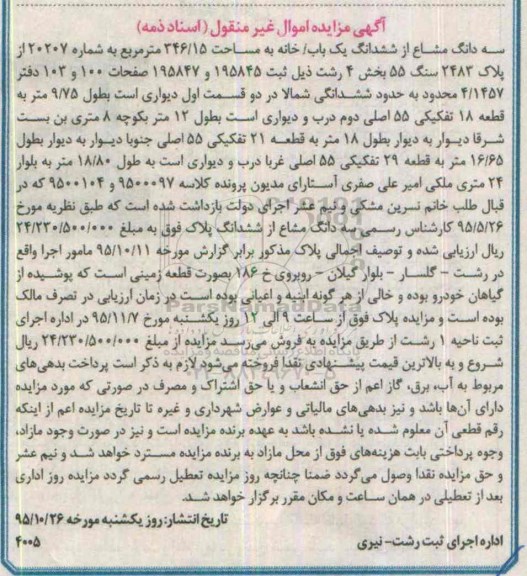 آگهی مزایده اموال غیر منقول (اسناد ذمه)
سه دانگ مشاع از ششدانگ یک باب/ خانه به مساحت ۳۴۶/۱۵ مترمربع به شماره ۲۰۲۰۷ از
پلاک ۲۴۸۳ سنگ ۵۵ بخش ۴ رشت ذیل ثبت ۱۹۵۸۴۵ و ۱۹۵۸۴۷ صفحات ۱۰۰ و ۱۰۳ دفتر
۴/۱۴۵۷ محدود به حدود ششدانگی شمالا در دو قسمت اول دیواری است بطول ۹/۷۵ متر به
قطعه ۱۸ تفکیکی ۵۵ اصلی دوم درب و دیواری است بطول ۱۲ متر بکوچه ۸ متری بن بست
شرقا دیوار به دیوار بطول ۱۸ متر به قطعه ۲۱ تفکیکی ۵۵ اصلی جنوبا دیوار به دیوار بطول
۱۶/۶۵ متر به قطعه ۲۹ تفکیکی ۵۵ اصلی غربا درب و دیواری است به طول ۱۸/۸۰ متر به بلوار
۲۴ متری ملکی امیر علی صفری آستارای مدیون پرونده کلاسه ۹۵۰۰۰۹۷ و ۹۵۰۰۱۰۴ که در
قبال طلب خانم نسرین مشکی و نیم عشر اجرای دولت بازداشت شده است که طبق نظریه مورخ
۹۵/۵/۲۶ کارشناس رسمی سه دانگ مشاع از ششدانگ پلاک فوق به مبلغ ۲۴/۲۳۰/۵۰۰/۰۰۰
ریال ارزیابی شده و توصیف اجمالی پلاک مذکور برابر گزارش مورخه ۹۵/۱۰/۱۱ مامور اجرا واقع
در رشت – گلسار – بلوار گیلان – روبروی خ ۱۸۶ بصورت قطعه زمینی است که پوشیده از
گیاهان خودرو بوده و خالی از هر گونه ابنیه و اعیانی بوده است در زمان ارزیابی در تصرف مالک
بوده است و مزایده پلاک فوق از ساعت ۹ الی ۱۲ روز یکشنبه مورخ ۹۵/۱۱/۷ در اداره اجرای
ثبت ناحیه ۱ رشت از طریق مزایده به فروش می‌رسد مزایده از مبلغ ۲۴/۲۳۰/۵۰۰/۰۰۰ ریال
شروع و به بالاترین قیمت پیشنهادی نقدا فروخته می‌شود لازم به ذکر است پرداخت بدهی‌های
مربوط به آب، برق، گاز اعم از حق انشعاب و یا حق اشتراک و مصرف در صورتی که مورد مزایده
دارای آن‌ها باشد و نیز بدهی‌های مالیاتی و عوارض شهرداری و غیره تا تاریخ مزایده اعم از اینکه
رقم قطعی آن معلوم شده یا نشده باشد به عهده برنده مزایده است و نیز در صورت وجود مازاد،
وجوه پرداختی بابت هزینه‌های فوق از محل مازاد به برنده مزایده مسترد خواهد شد و نیم عشر
و حق مزایده نقدا وصول می‌گردد ضمنا چنانچه روز مزایده تعطیل رسمی گردد مزایده روز اداری
بعد از تعطیلی در همان ساعت و مکان مقرر برگزار خواهد شد.
تاریخ انتشار: روز یکشنبه مورخه ۹۵/۱۰/۲۶
اداره اجرای ثبت رشت – نیری
۴۰۰۵